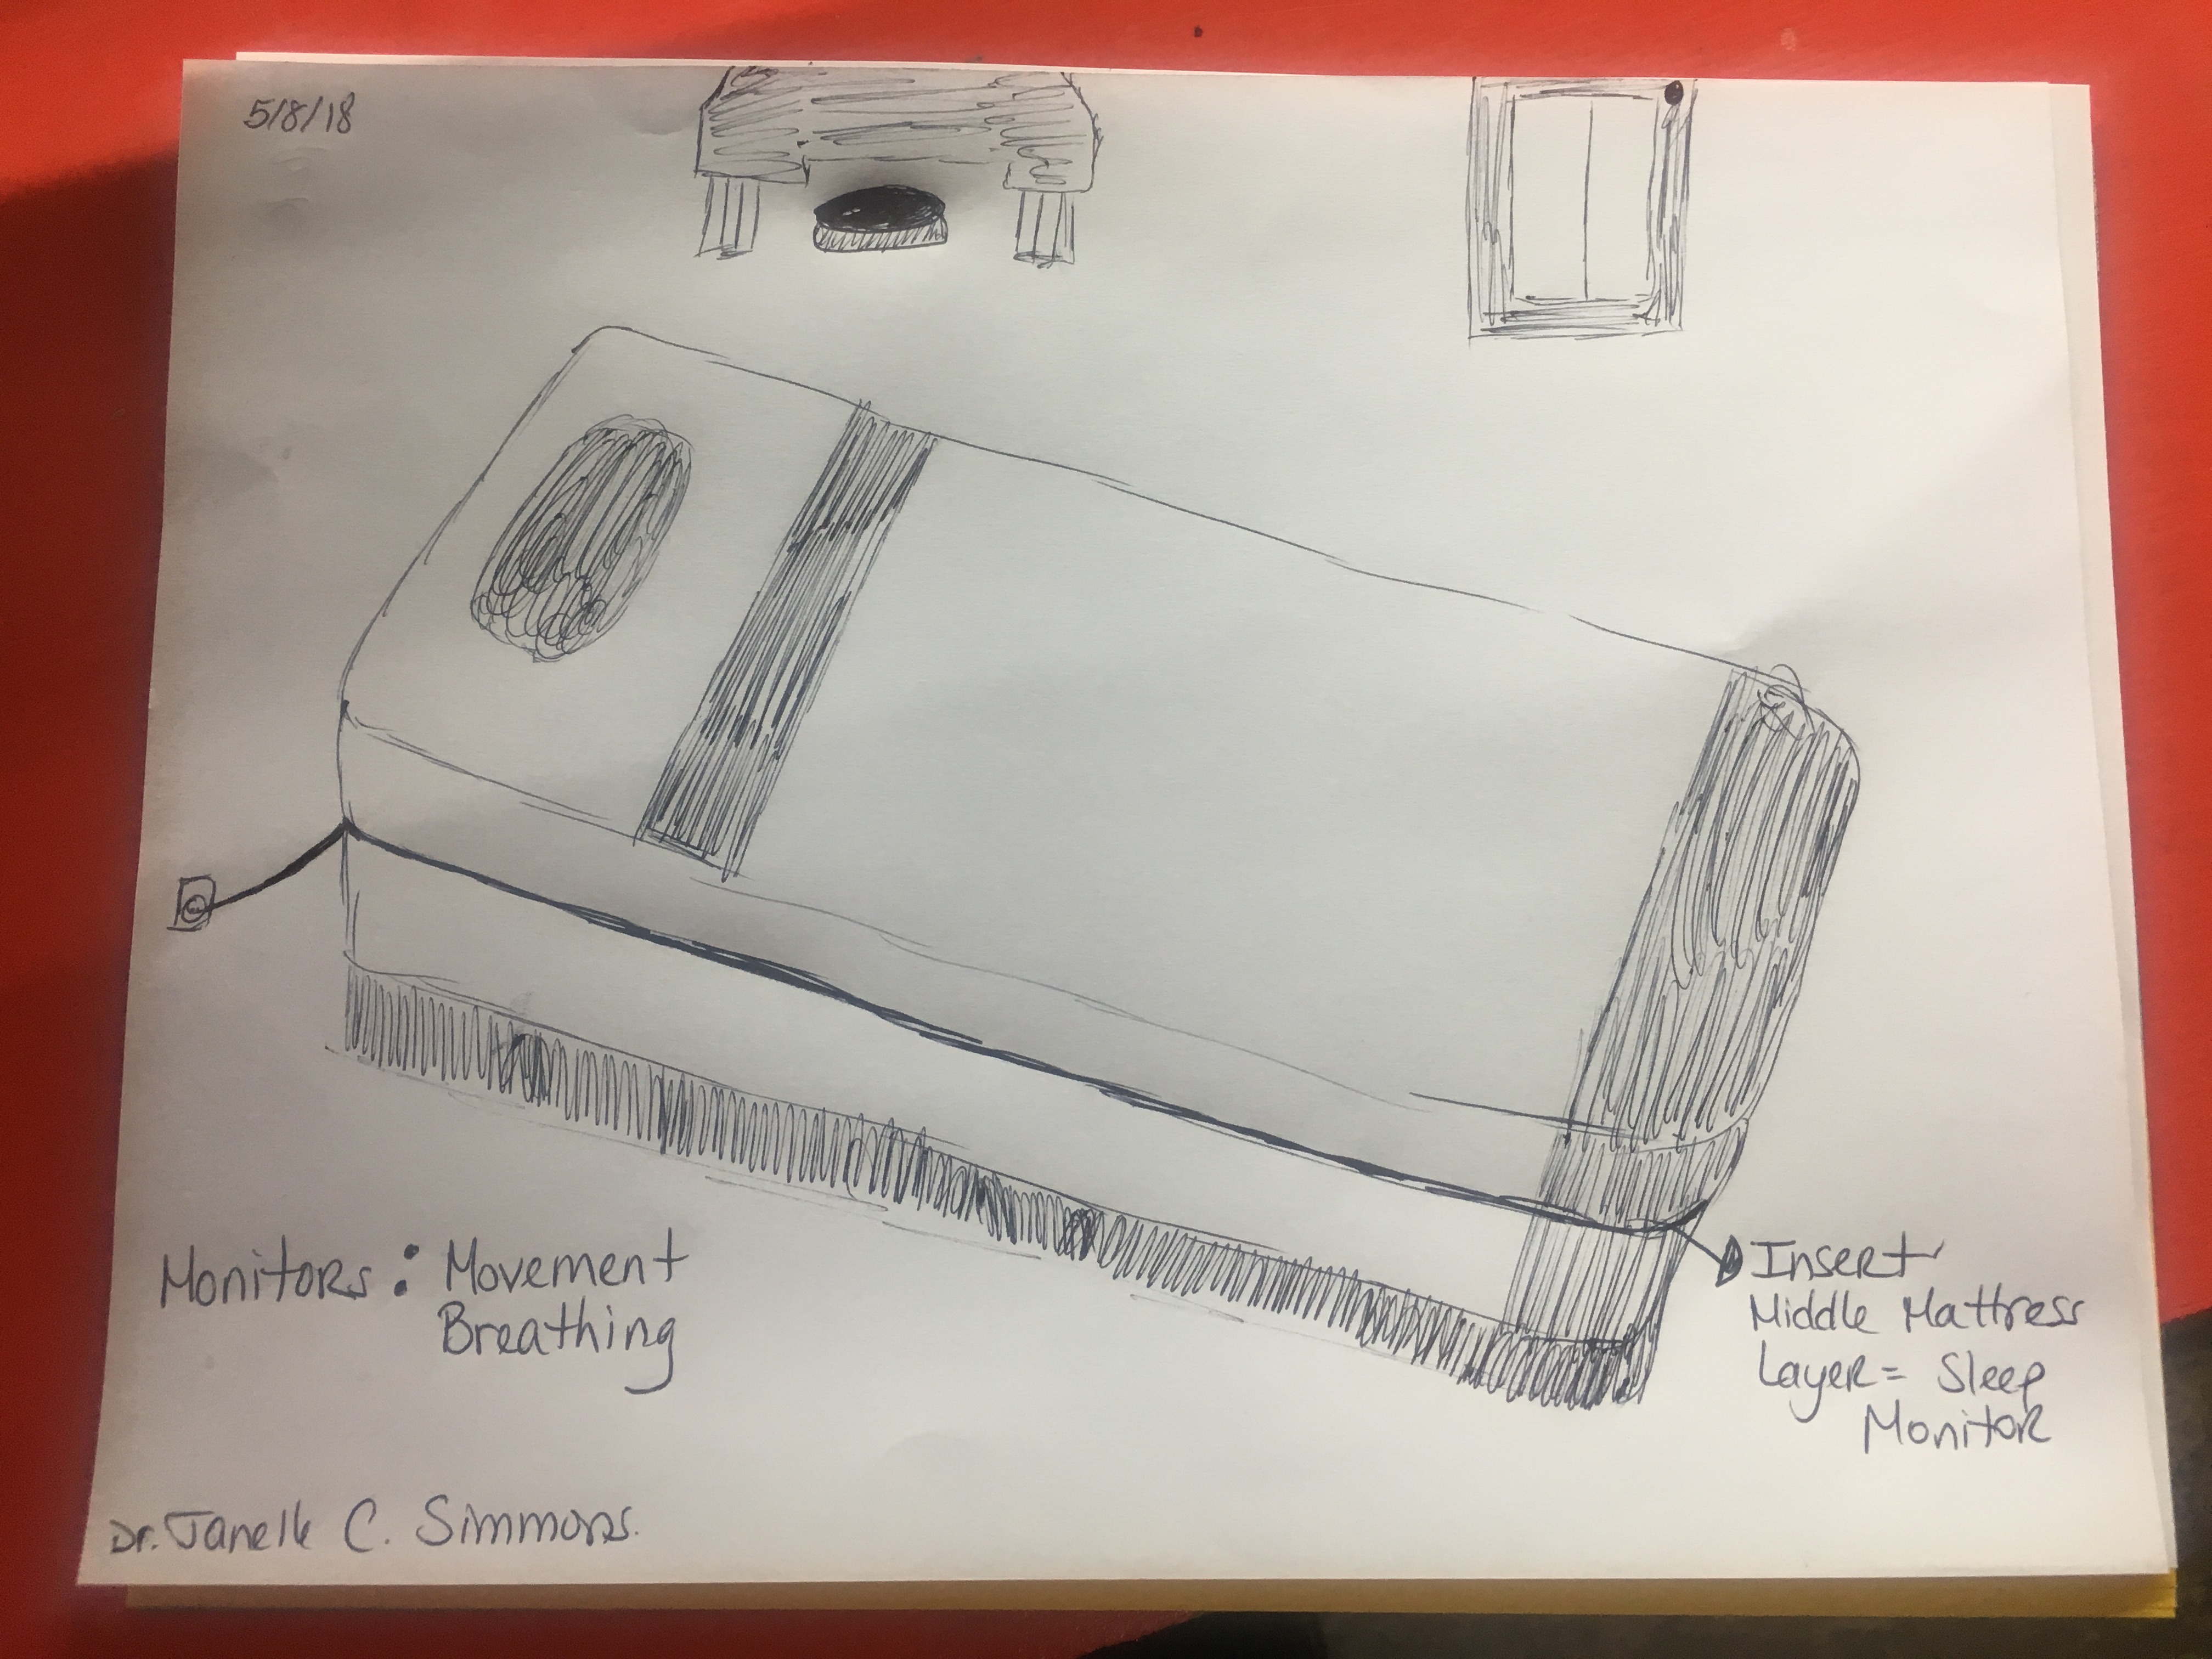 5/8/18
Monitors: Movement
Breathing
Insert
Middle Mattress
Layer= Sleep
Monitor
Dr. Janelle C. Simmons.